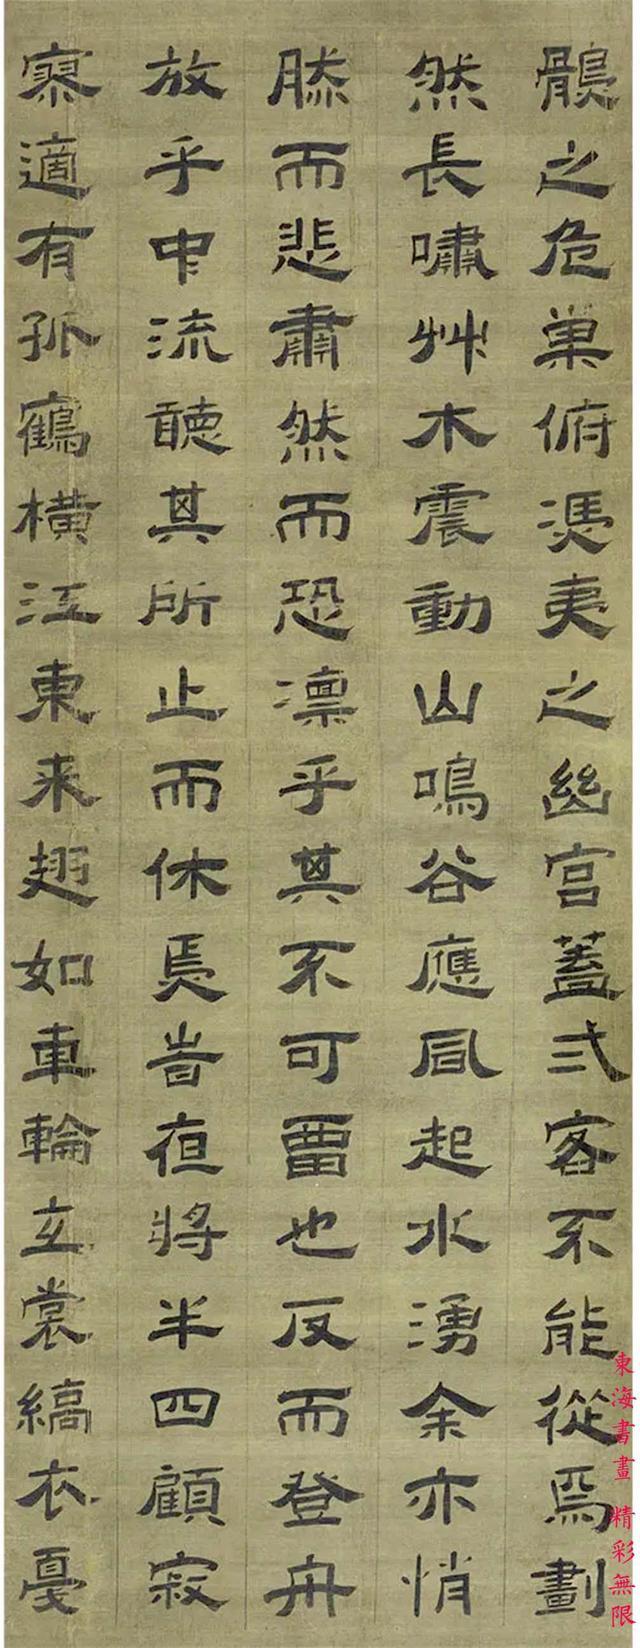 鶻之危巢俯馮夷之幽宮蓋弍客不能從焉劃
然長嘯艸木震動山鳴谷應風起水湧余亦悄
然而悲肅然而恐凛乎其不可畱也反而登舟
放乎中流聽其所止而休焉旹夜將半四顧寂
寥適有孤鶴橫江東来翅如車輪玄裳縞衣戞
東海書畫 精彩無限